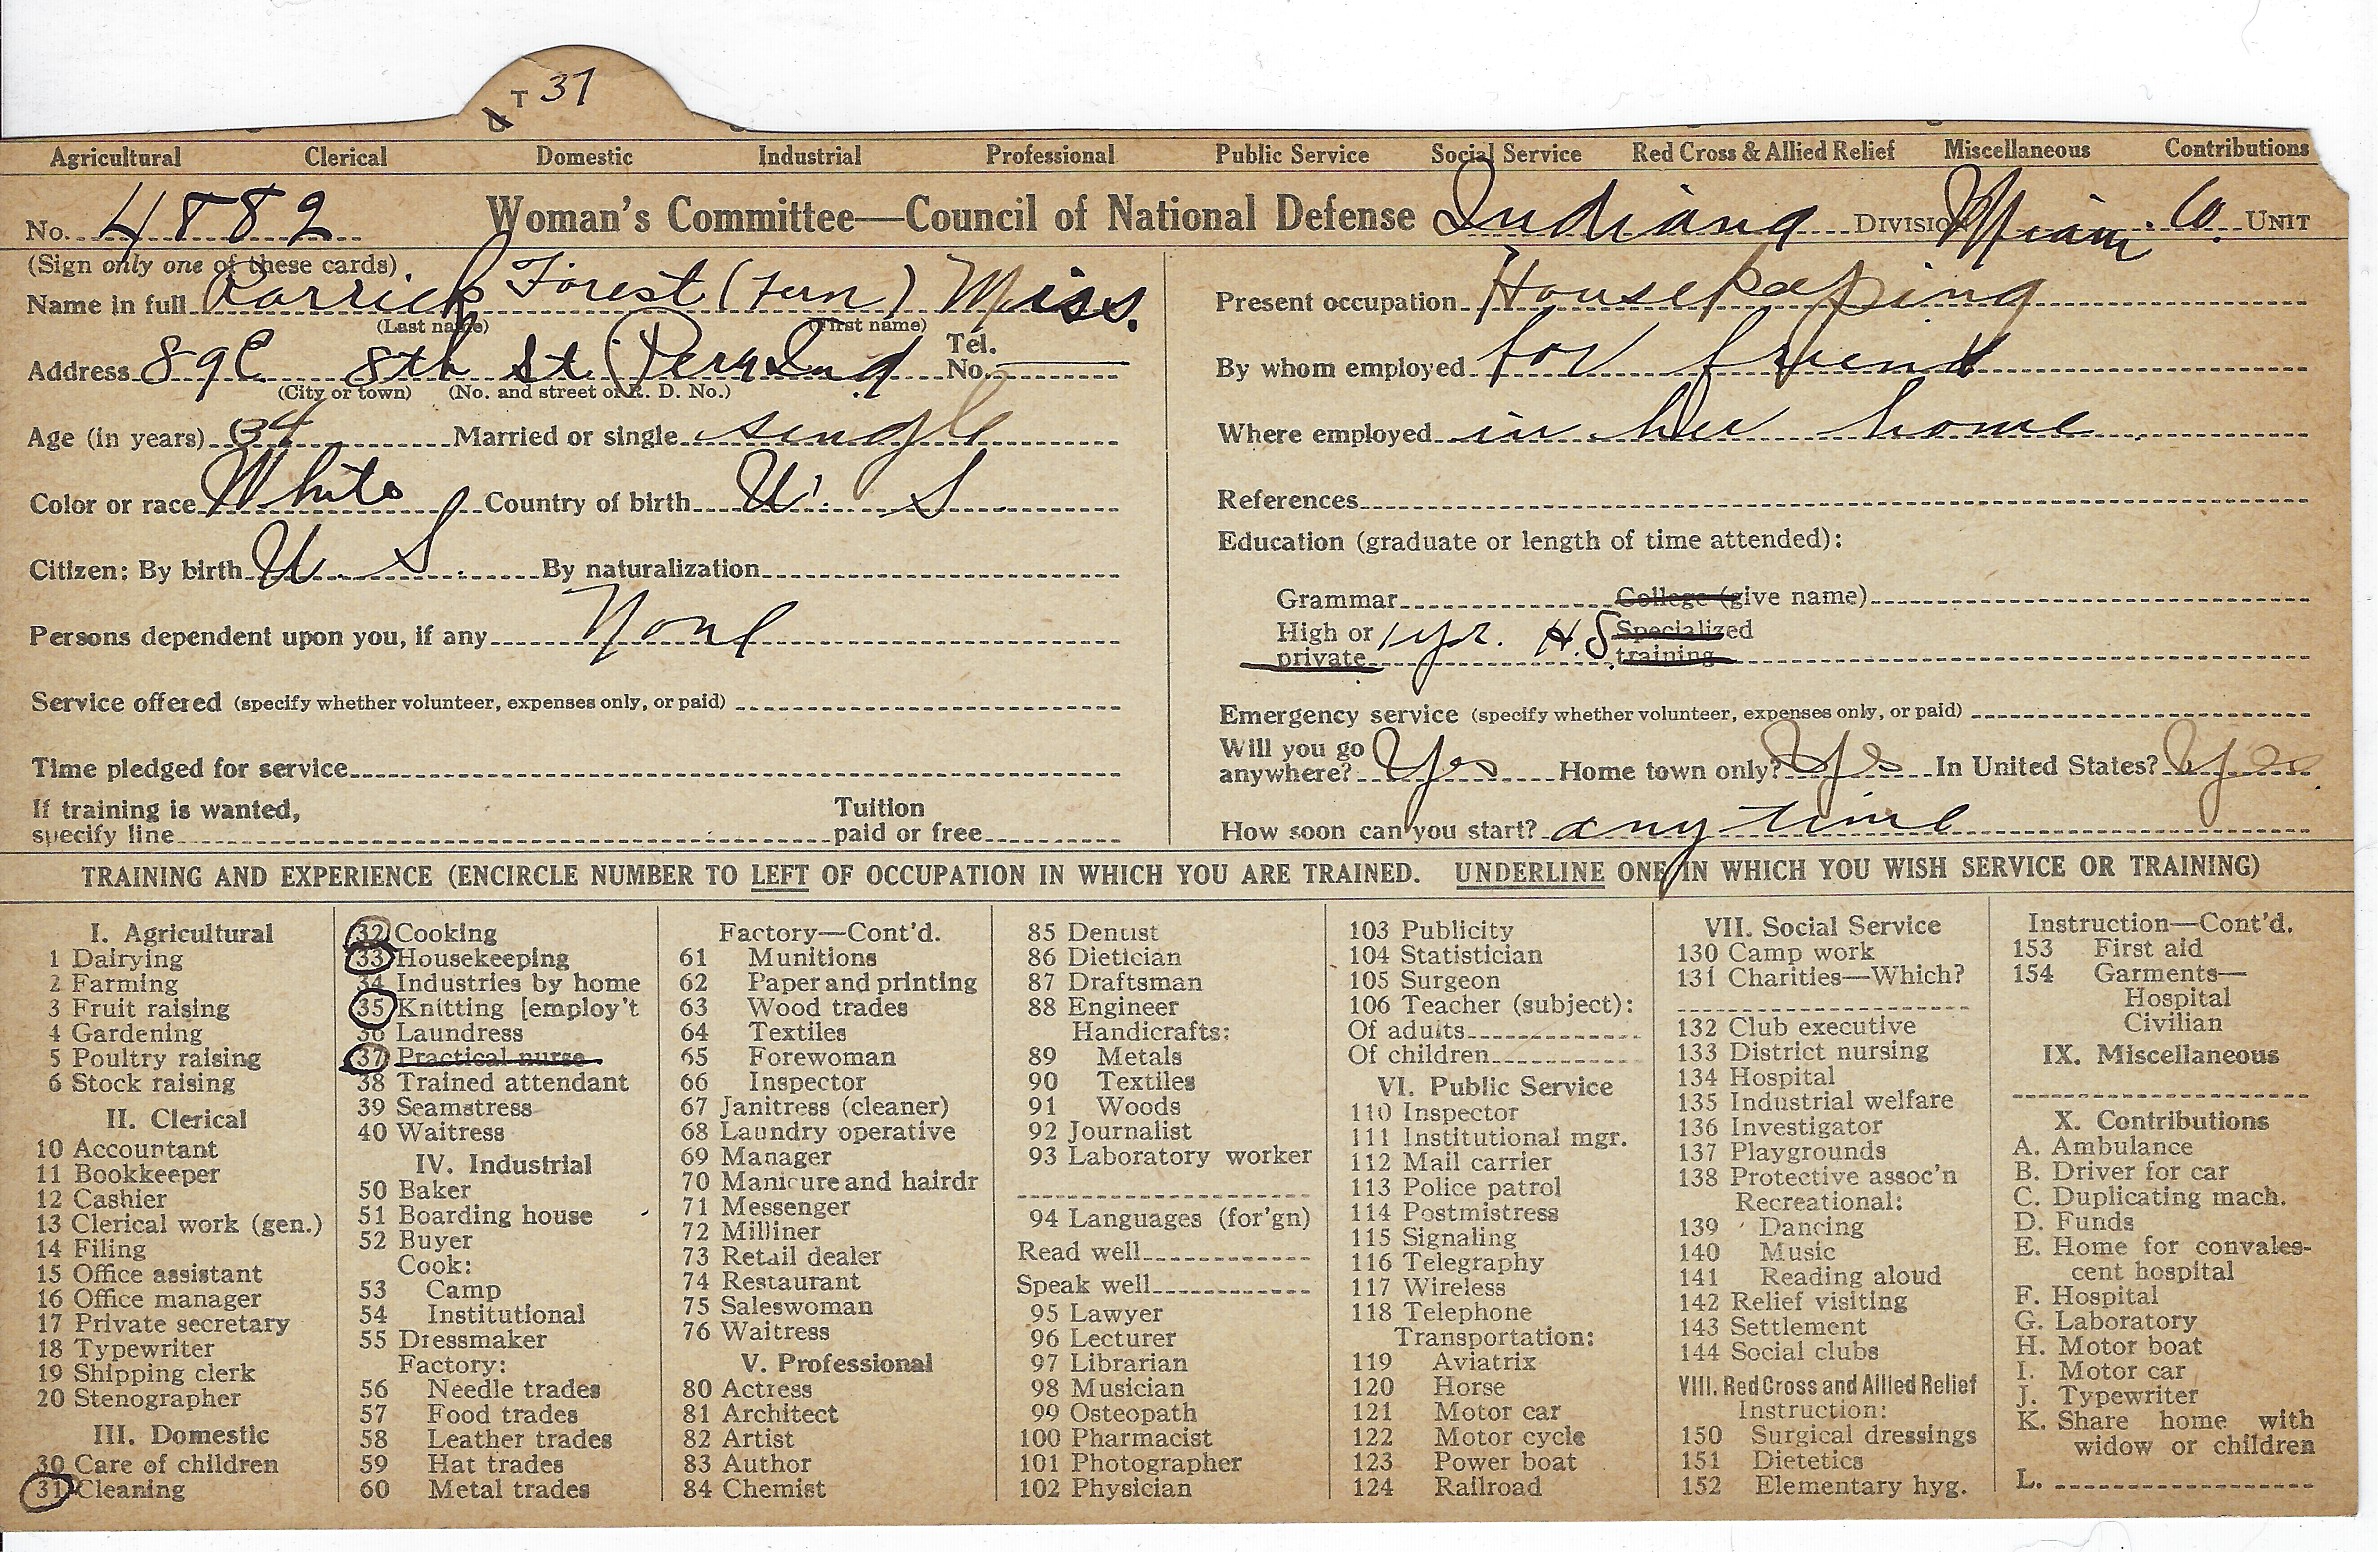 T 37
Agricultural Clerical Domestic Industrial Professional Public Service Social Service Red Cross & Allied Relief Miscellaneous Contributions
No. 4882 Woman's Committee—Council of National Defense Indiana DIVISION Miami Co. UNIT
(Sign only one of these cards)
Name in full Carrick Forest (Fern) Miss.
(Last name) (First name)
Address 89 E 8th St. Peru Ind Tel. No.
(City or town) (No. and street or R. D. No.)
Age (in years) 34 Married or single single
Color or race White Country of birth U. S.
Citizen: By birth U. S. By naturalization
Persons dependent upon you, if any None
Service offered (specify whether volunteer, expenses only, or paid)
Time pledged for service
If training is wanted,
specify line
Tuition
paid or free
Present occupation Housekeeping
By whom employed for friend
Where employed in her home
References
Education (graduate or length of time attended):
Grammar College (give name)
High or private 1 yr. H.S. Specialized training
Emergency service (specify whether volunteer, expenses only, or paid)
Will you go anywhere? Yes Home town only? Yes In United States? Yes
How soon can you start? any time
TRAINING AND EXPERIENCE (ENCIRCLE NUMBER TO LEFT OF OCCUPATION IN WHICH YOU ARE TRAINED. UNDERLINE ONE IN WHICH YOU WISH SERVICE OR TRAINING)
I. Agricultural
1 Dairying
2 Farming
3 Fruit raising
4 Gardening
5 Poultry raising
6 Stock raising
II. Clerical
10 Accountant
11 Bookkeeper
12 Cashier
13 Clerical work (gen.)
14 Filing
15 Office assistant
16 Office manager
17 Private secretary
18 Typewriter
19 Shipping clerk
20 Stenographer
III. Domestic
30 Care of children
31 Cleaning
32 Cooking
33 Housekeeping
34 Industries by home
35 Knitting [employ't
36 Laundress
37 Practical nurse
38 Trained attendant
39 Seamstress
40 Waitress
IV. Industrial
50 Baker
51 Boarding house
52 Buyer
Cook:
53 Camp
54 Institutional
55 Dressmaker
Factory:
56 Needle trades
57 Food trades
58 Leather trades
59 Hat trades
60 Metal trades
Factory—Cont'd.
61 Munitions
62 Paper and printing
63 Wood trades
64 Textiles
65 Forewoman
66 Inspector
67 Janitress (cleaner)
68 Laundry operative
69 Manager
70 Manicure and hairdr
71 Messenger
72 Milliner
73 Retail dealer
74 Restaurant
75 Saleswoman
76 Waitress
V. Professional
80 Actress
81 Architect
82 Artist
83 Author
84 Chemist
85 Dentist
86 Dietician
87 Draftsman
88 Engineer
Handicrafts:
89 Metals
90 Textiles
91 Woods
92 Journalist
93 Laboratory worker
94 Languages (for'gn)
Read well
Speak well
95 Lawyer
96 Lecturer
97 Librarian
98 Musician
99 Osteopath
100 Pharmacist
101 Photographer
102 Physician
103 Publicity
104 Statistician
105 Surgeon
106 Teacher (subject):
Of adults
Of children
VI. Public Service
110 Inspector
111 Institutional mgr.
112 Mail carrier
113 Police patrol
114 Postmistress
115 Signaling
116 Telegraphy
117 Wireless
118 Telephone
Transportation:
119 Aviatrix
120 Horse
121 Motor car
122 Motor cycle
123 Power boat
124 Railroad
VII. Social Service
130 Camp work
131 Charities—Which?
132 Club executive
133 District nursing
134 Hospital
135 Industrial welfare
136 Investigator
137 Playgrounds
138 Protective assoc'n
Recreational:
139 Dancing
140 Music
141 Reading aloud
142 Relief visiting
143 Settlement
144 Social clubs
VIII. Red Cross and Allied Relief
Instruction:
150 Surgical dressings
151 Dietetics
152 Elementary hyg.
Instruction—Cont'd.
153 First aid
154 Garments—
Hospital
Civilian
IX. Miscellaneous
X. Contributions
A. Ambulance
B. Driver for car
C. Duplicating mach.
D. Funds
E. Home for convales-
cent hospital
F. Hospital
G. Laboratory
H. Motor boat
I. Motor car
J. Typewriter
K. Share home with
widow or children
L.